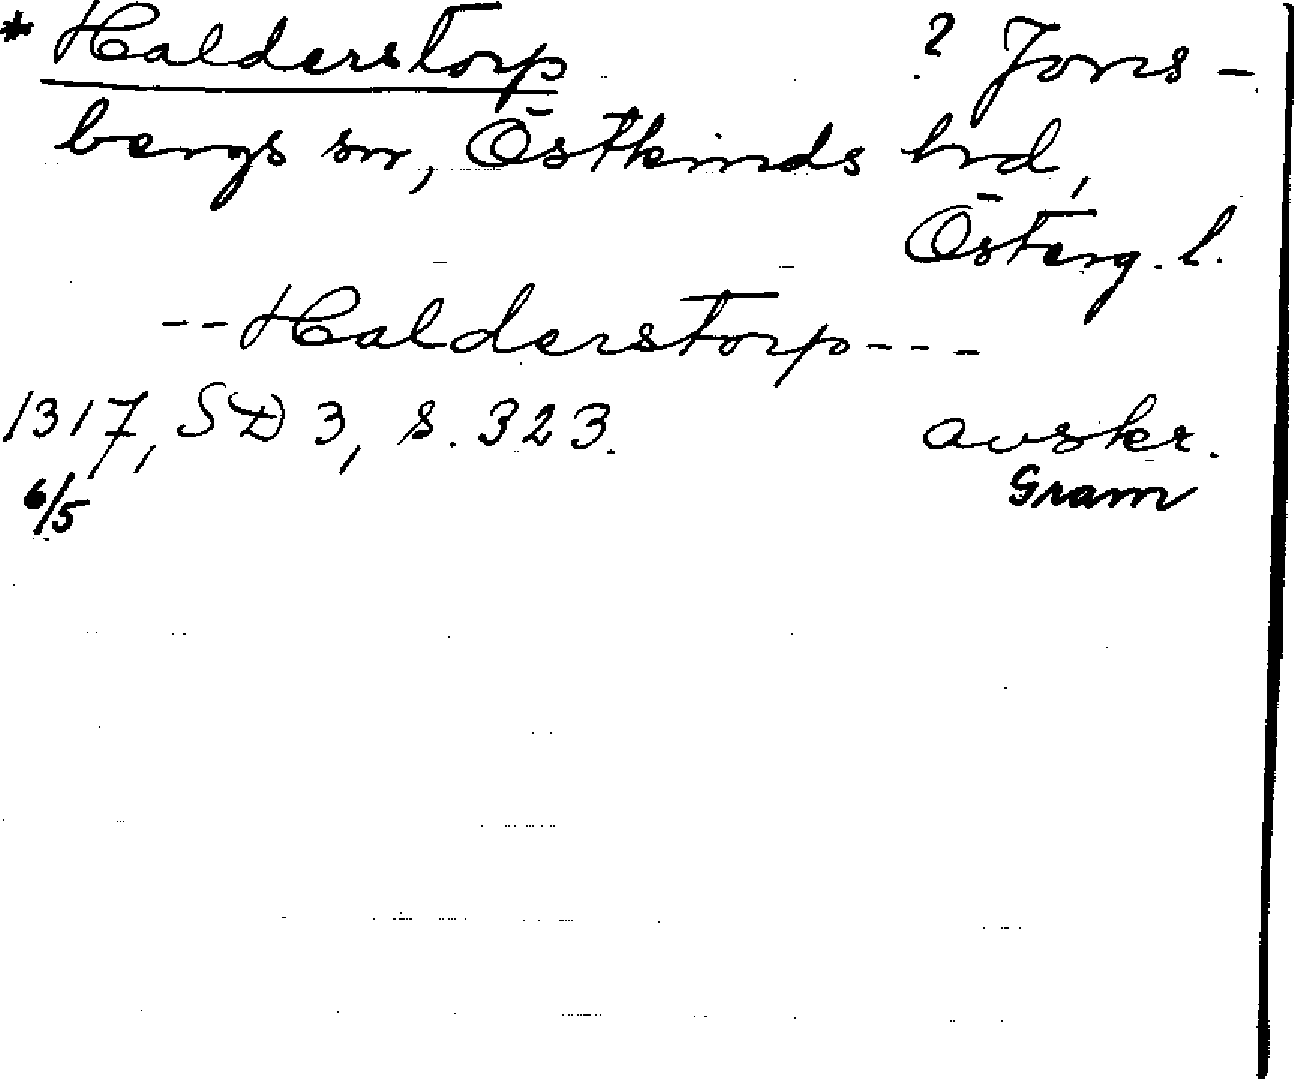 * Halderstorp ? Jons-
bergs sn, Östkinds hrd,
Österg. l.
-- Halderstorp ---
1317, SD 3, s. 323. avskr.
6/5 Gram